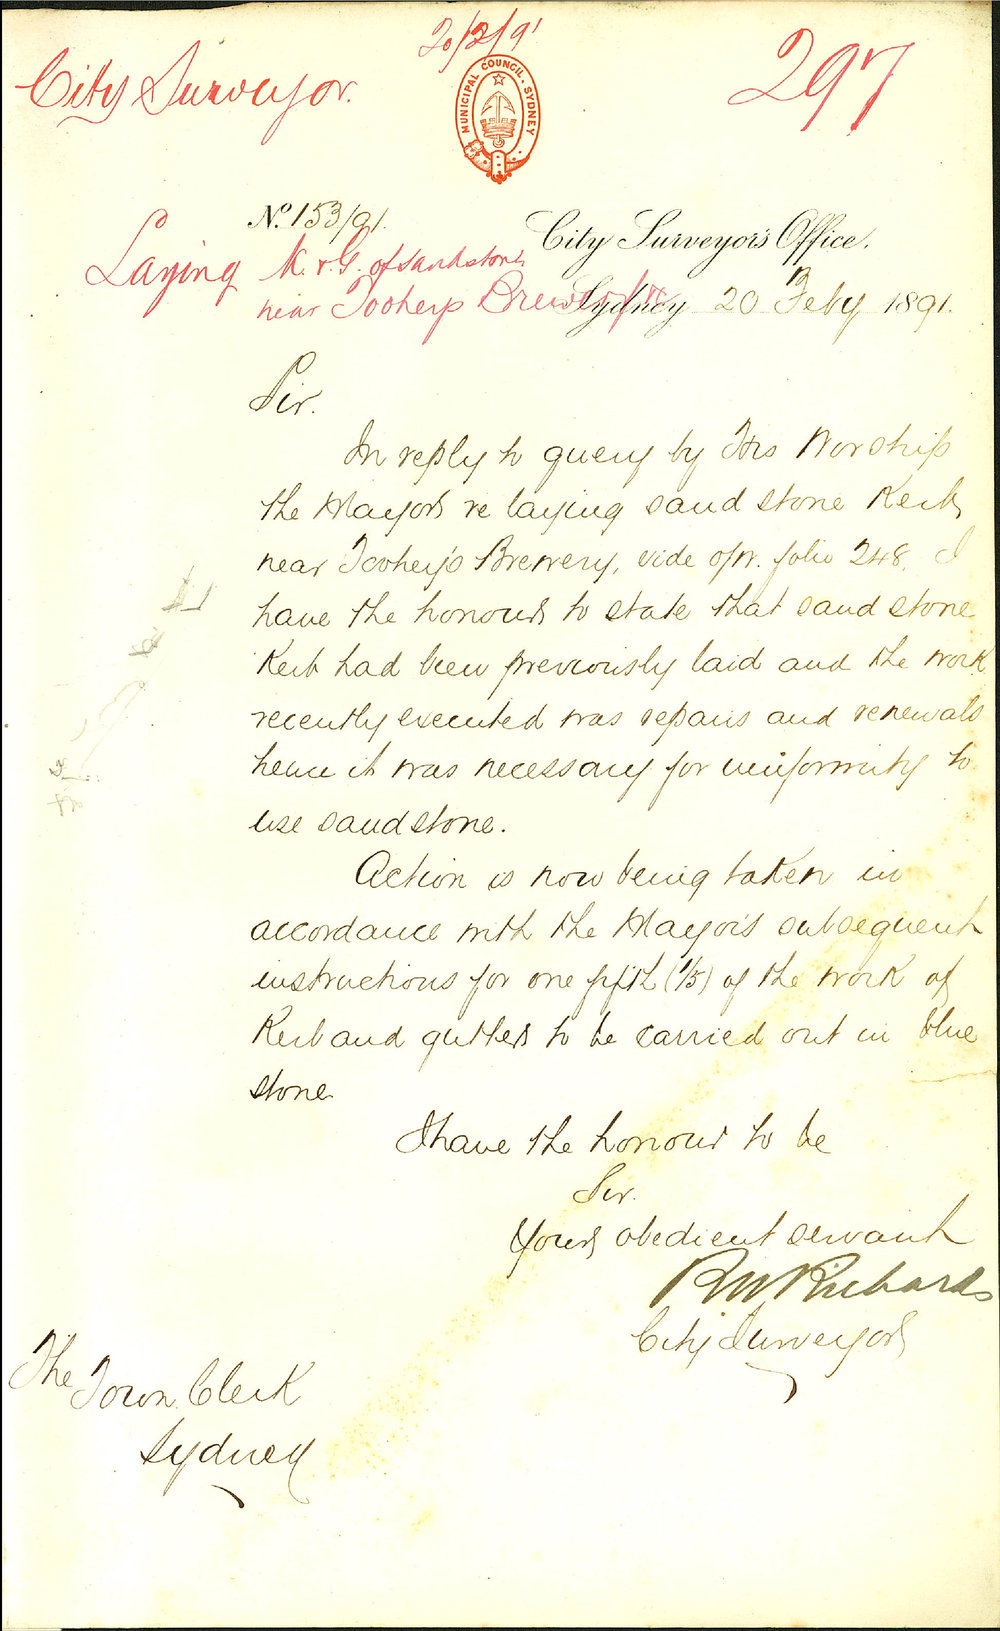 20/2/91
City Surveyor.
297
MUNICIPAL COUNCIL. SYDNEY
No. 153/91.
City Surveyor's Office.
Laying K. & G. of sandstone
near Tooheys Brewery &c
Sydney 20 Feby 1891.
Sir.
In reply to query by His Worship
the Mayor re laying sand stone Kerb,
near Toohey's Brewery, vide opn. folio 248, I
have the honour to state that sand stone
Kerb had been previously laid and the work
recently executed was repairs and renewals
hence it was necessary for uniformity to
use sand stone.
Action is now being taken in
accordance with the Mayor's subsequent
instructions for one fifth (1/5) of the work of
Kerb and gutter to be carried out in blue
stone
I have the honour to be
Sir.
Yours obedient servant
R W Richards
City Surveyor
The
Town Clerk
Sydney